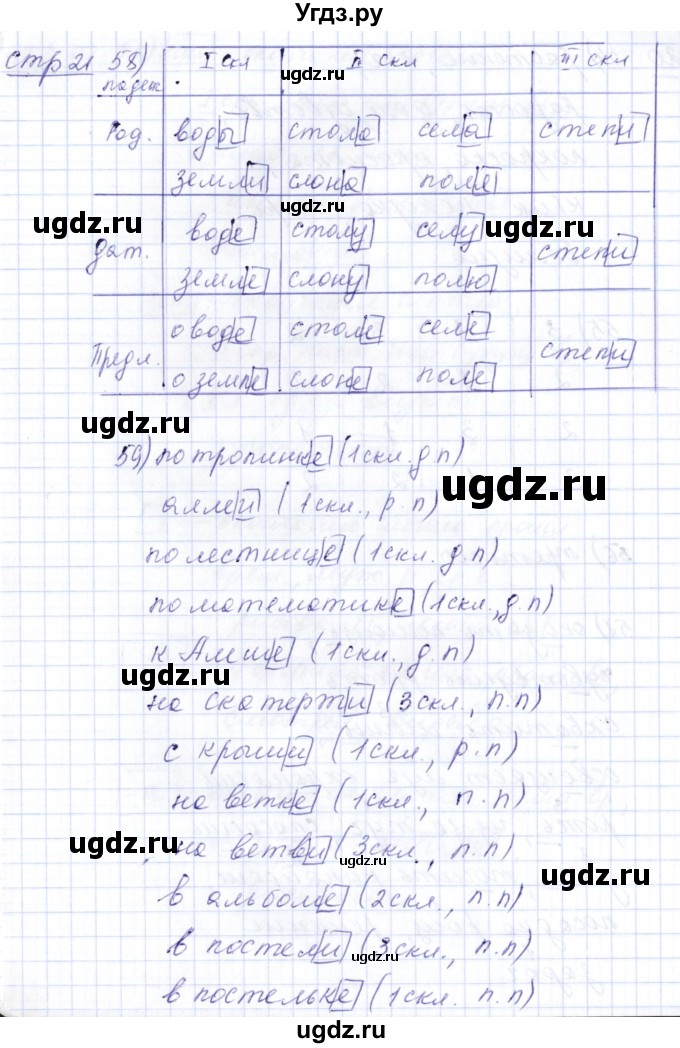 Угдз.ру
стр 21 58)
падеж I скл II скл III скл
ugdz.ru
Род. воды стола села степи
земли слона поля
ugdz.ru ugdz.ru ugdz.ru
Дат. воде столу селу степи
земле слону полю
Предл. о воде столе селе степи
о земле слоне поле
59) по тропинке (1 скл. д.п)
ugdz.ru
аллеи (1 скл., р.п)
по лестнице (1 скл. д.п)
ugdz.ru
по математике (1 скл., д.п)
к Алисе (1 скл., д.п)
ugdz.ru
на скатерти (3 скл., п.п)
с крыши (1 скл., р.п)
на ветке (1 скл., п.п)
ugdz.ru
на ветви (3 скл., п.п)
ugdz.ru
ugdz.ru
в альбоме (2 скл., п.п)
в постели (3 скл., п.п)
ugdz.ru
в постельке (1 скл. п.п)
ugdz.ru